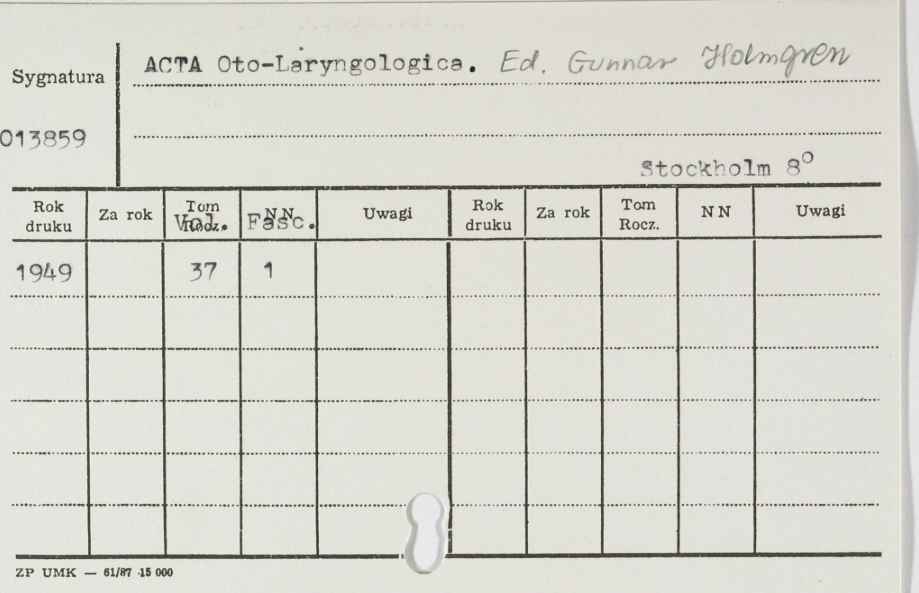 ACTA Oto-Laryngologica. Ed. Gunnar Holmgren
Sygnatura
013859
Stockholm 8⁰
Rok druku Za rok Tom Vol. Fasc. NN Uwagi Rok druku Za rok Tom Rocz. NN Uwagi
1949 37 1
ZP UMK — 61/87 15 000